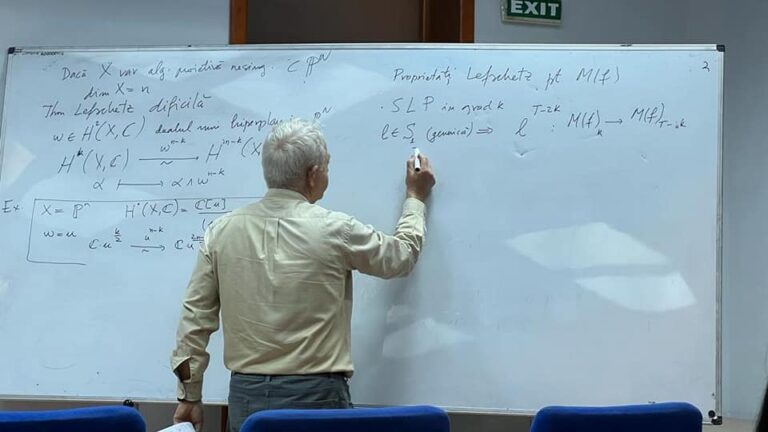 EXIT
2
Dacă X var alg. proiectivă nesing. ⊂ ℙᴺ
dim X = n
Thm Lefschetz dificilă
ω ∈ H²(X, ℂ) dualul unui hiperplan
Hᵏ(X, ℂ) ⟶ ωⁿ⁻ᵏ ~ H²ⁿ⁻ᵏ(X,
α ⟼ α ∧ ωⁿ⁻ᵏ
Ex X = ℙⁿ H˙(X, ℂ) = ℂ[u]
ω = u ℂ·u^{k/2} ⟶ uⁿ⁻ᵏ ~ ℂ u
Proprietăți Lefschetz pt M(f)
· SLP in grad k
ℓ ∈ S₁ (generică) ⇒ ℓ^{T-2k} : M(f)_k → M(f)_{T-k}